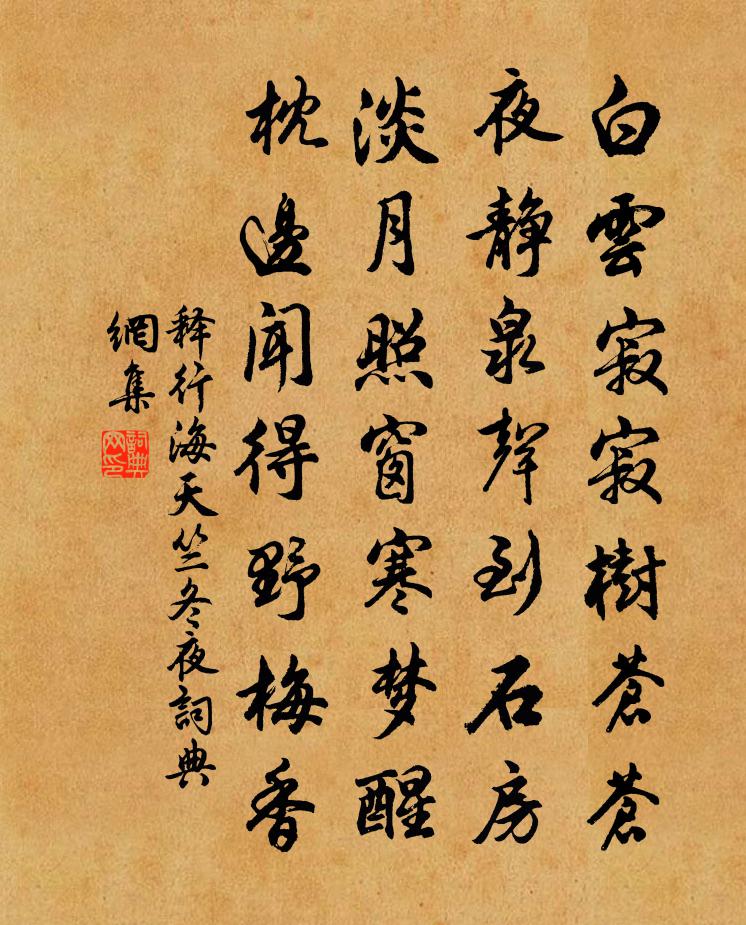 白雲寂寂樹蒼蒼
夜静泉聲到石房
淡月照窗寒梦醒
枕邊聞得野梅香
释行海天竺冬夜詞典
網集
詞典
网印